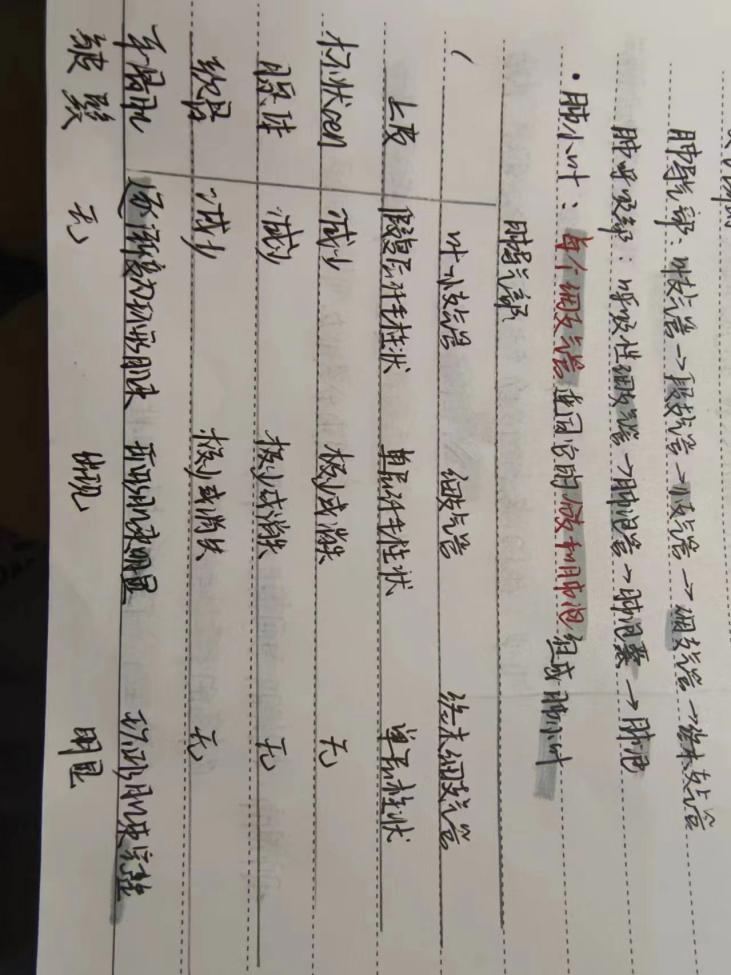 肺导气部：叶支气管→段支气管→小支气管→细支气管→终末支气管
肺呼吸部：呼吸性细支气管→肺泡管→肺泡囊→肺泡
·肺小叶：每个细支气管连同它的分支和肺泡组成肺小叶
肺导气部
叶→小支气管 细支气管 终末细支气管
上皮 假复层纤毛柱状 单层纤毛柱状 单层柱状
杯状cell 减少 极少或消失 无
腺体 减少 极少或消失 无
软骨 减少 极少或消失 无
平滑肌 逐渐变为环形肌束 环形肌束明显 环形肌束完整
皱襞 无 出现 明显